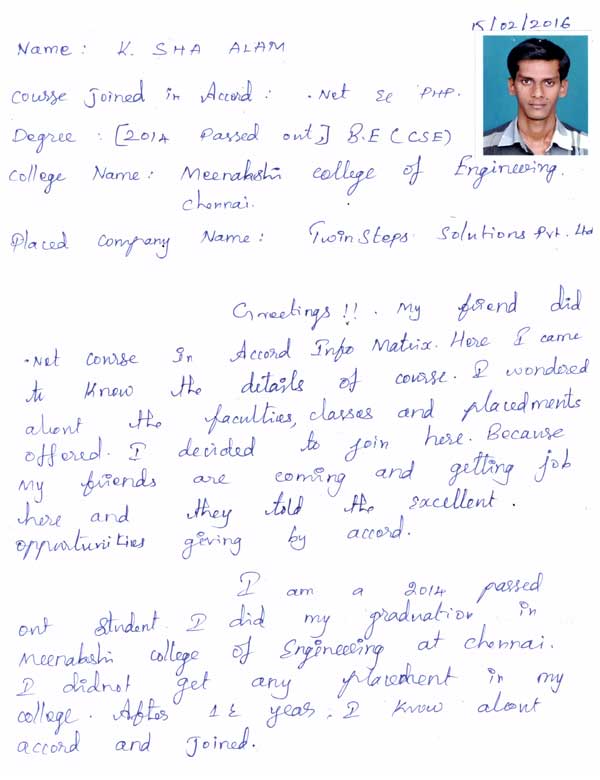 15/02/2016
Name : K. SHA ALAM
Course Joined in Accord : .Net & PHP.
Degree : [2014 Passed out,] B.E (CSE)
College Name : Meenakshi college of Engineering.
Chennai.
Placed Company Name : TwinSteps Solutions Pvt. Ltd
Greetings !! . My friend did
.Net course in Accord Info Matrix. Here I came
to Know the details of course. I wondered
about the faculties, classes and placedments
offered. I decided to join here. Because
My friends are coming and getting job
here and they told the excellent .
opportunities giving by accord.
I am a 2014 passed
out student. I did my graduation in
Meenakshi college of Engineering at chennai.
I didnot get any placedment in my
college. After 1½ year, I know about
accord and Joined.